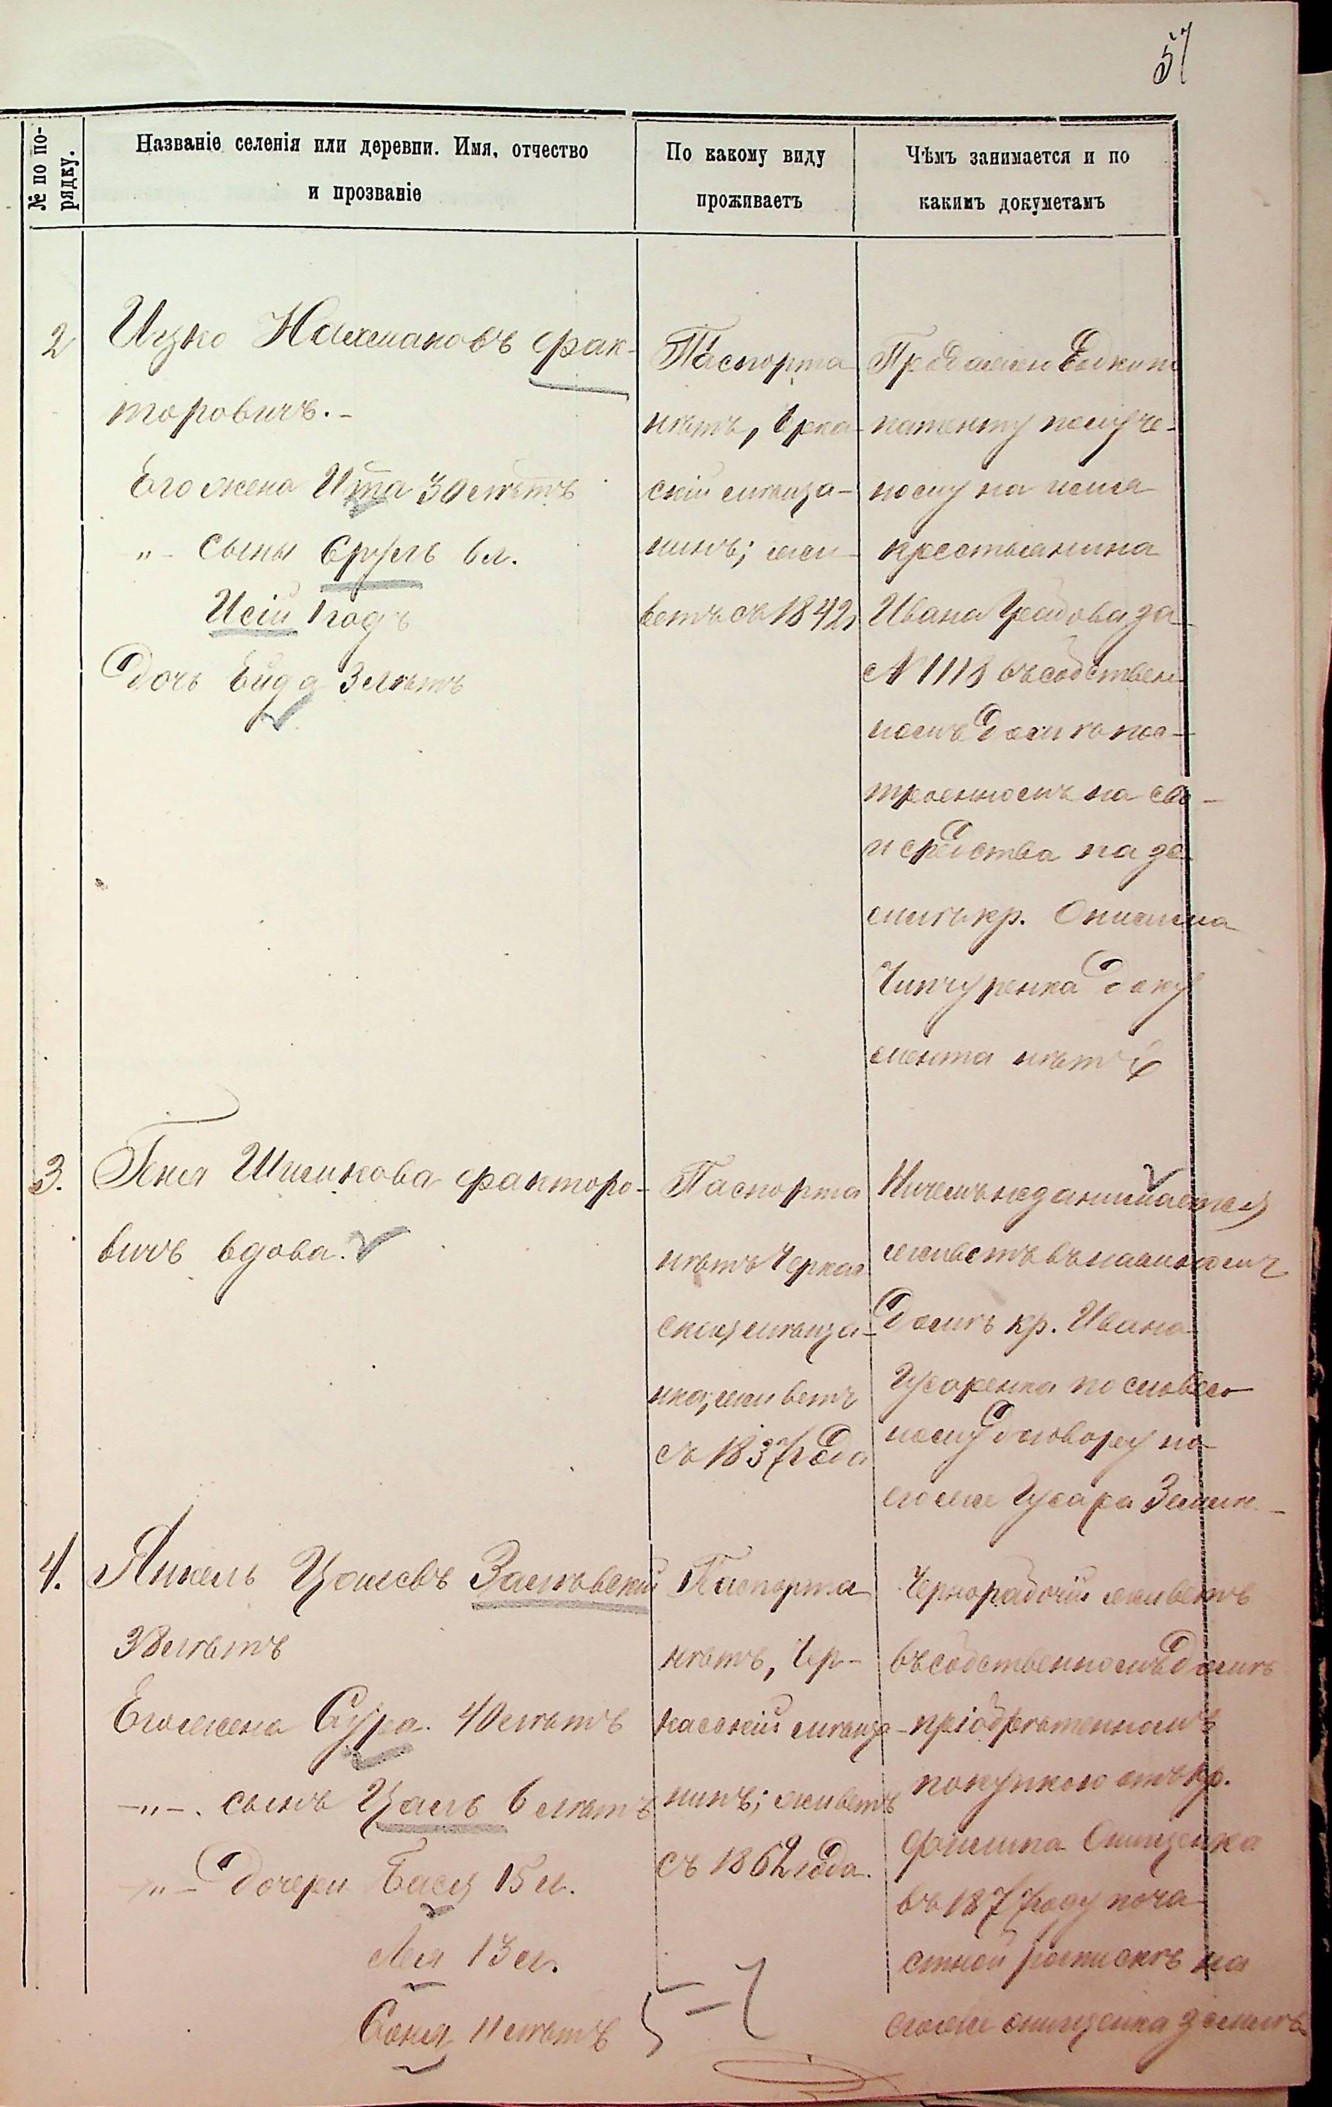 57
№ по по-
рядку.
Названіе селенія или деревни. Имя, отчество
и прозваніе
По какому виду
проживаетъ
Чѣмъ занимается и по
какимъ докуметамъ
2
Ицко Нахмановъ Фак-
торовичъ.-
Его жена Ита 30 лѣтъ
-"- сыны Сруль 6 л.
Исій 1 годъ
Дочь Ейда 3 лѣтъ
Паспорта
нѣтъ, Чрка-
скій мѣща-
нинъ; жи-
ветъ съ 1842
Продажею водки по
патенту получе-
ному на имя
крестьянина
Ивана за
№ 1113 въ собствен
номъ домѣ пос-
троенномъ на сво-
и средства на зе
млѣ кр. Онисима
Чипчуренка доку
мента нѣтъ
3.
Геня Шимкова Факторо-
вичъ вдова.
Паспорта
нѣтъ Черка
ская мѣща-
нка; живетъ
съ 1837 года
Ничемъ не занимается
живетъ въ наемномъ
домѣ кр. Ивана
Гусаренка по словес
ному договору на
его же Гусара Земле
4.
Янкель Цалевъ Заславскій
38 лѣтъ
Его жена Сура. 40 лѣтъ
-"-. сынъ Цаль 6 лѣтъ
-"- Дочери Бася 15 л.
Лея 13 л.
Соня 11 лѣтъ
Паспорта
нѣтъ, Чер-
касскій мѣща-
нинъ; живетъ
съ 1862 года.
Чернорабочій живетъ
въ собственномъ домѣ
пріобрѣтенномъ
покупкою отъ кр.
Филипа Онищенка
въ 1877 году по ча
стной роспискѣ на
его же Онищенка землѣ
5-7